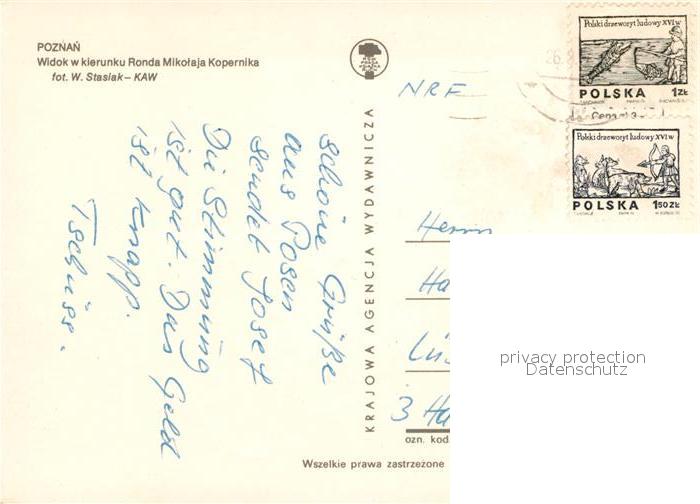 POZNAŃ
Widok w kierunku Ronda Mikołaja Kopernika
fot. W. Stasiak – KAW
schöne Grüße
aus Posen
sendet Josef
Die Stimmung
ist gut. Das Geld
ist knapp.
Tschüss.
KRAJOWA AGENCJA WYDAWNICZA
NRF
Polski drzeworyt ludowy XVI w
POLSKA 1 ZŁ
Cena zł 3
Polski drzeworyt ludowy XVI w
POLSKA 1.50 ZŁ
Herrn
Ha
Lüs
3 Ha
ozn. kod
Wszelkie prawa zastrzeżone
privacy protection
Datenschutz